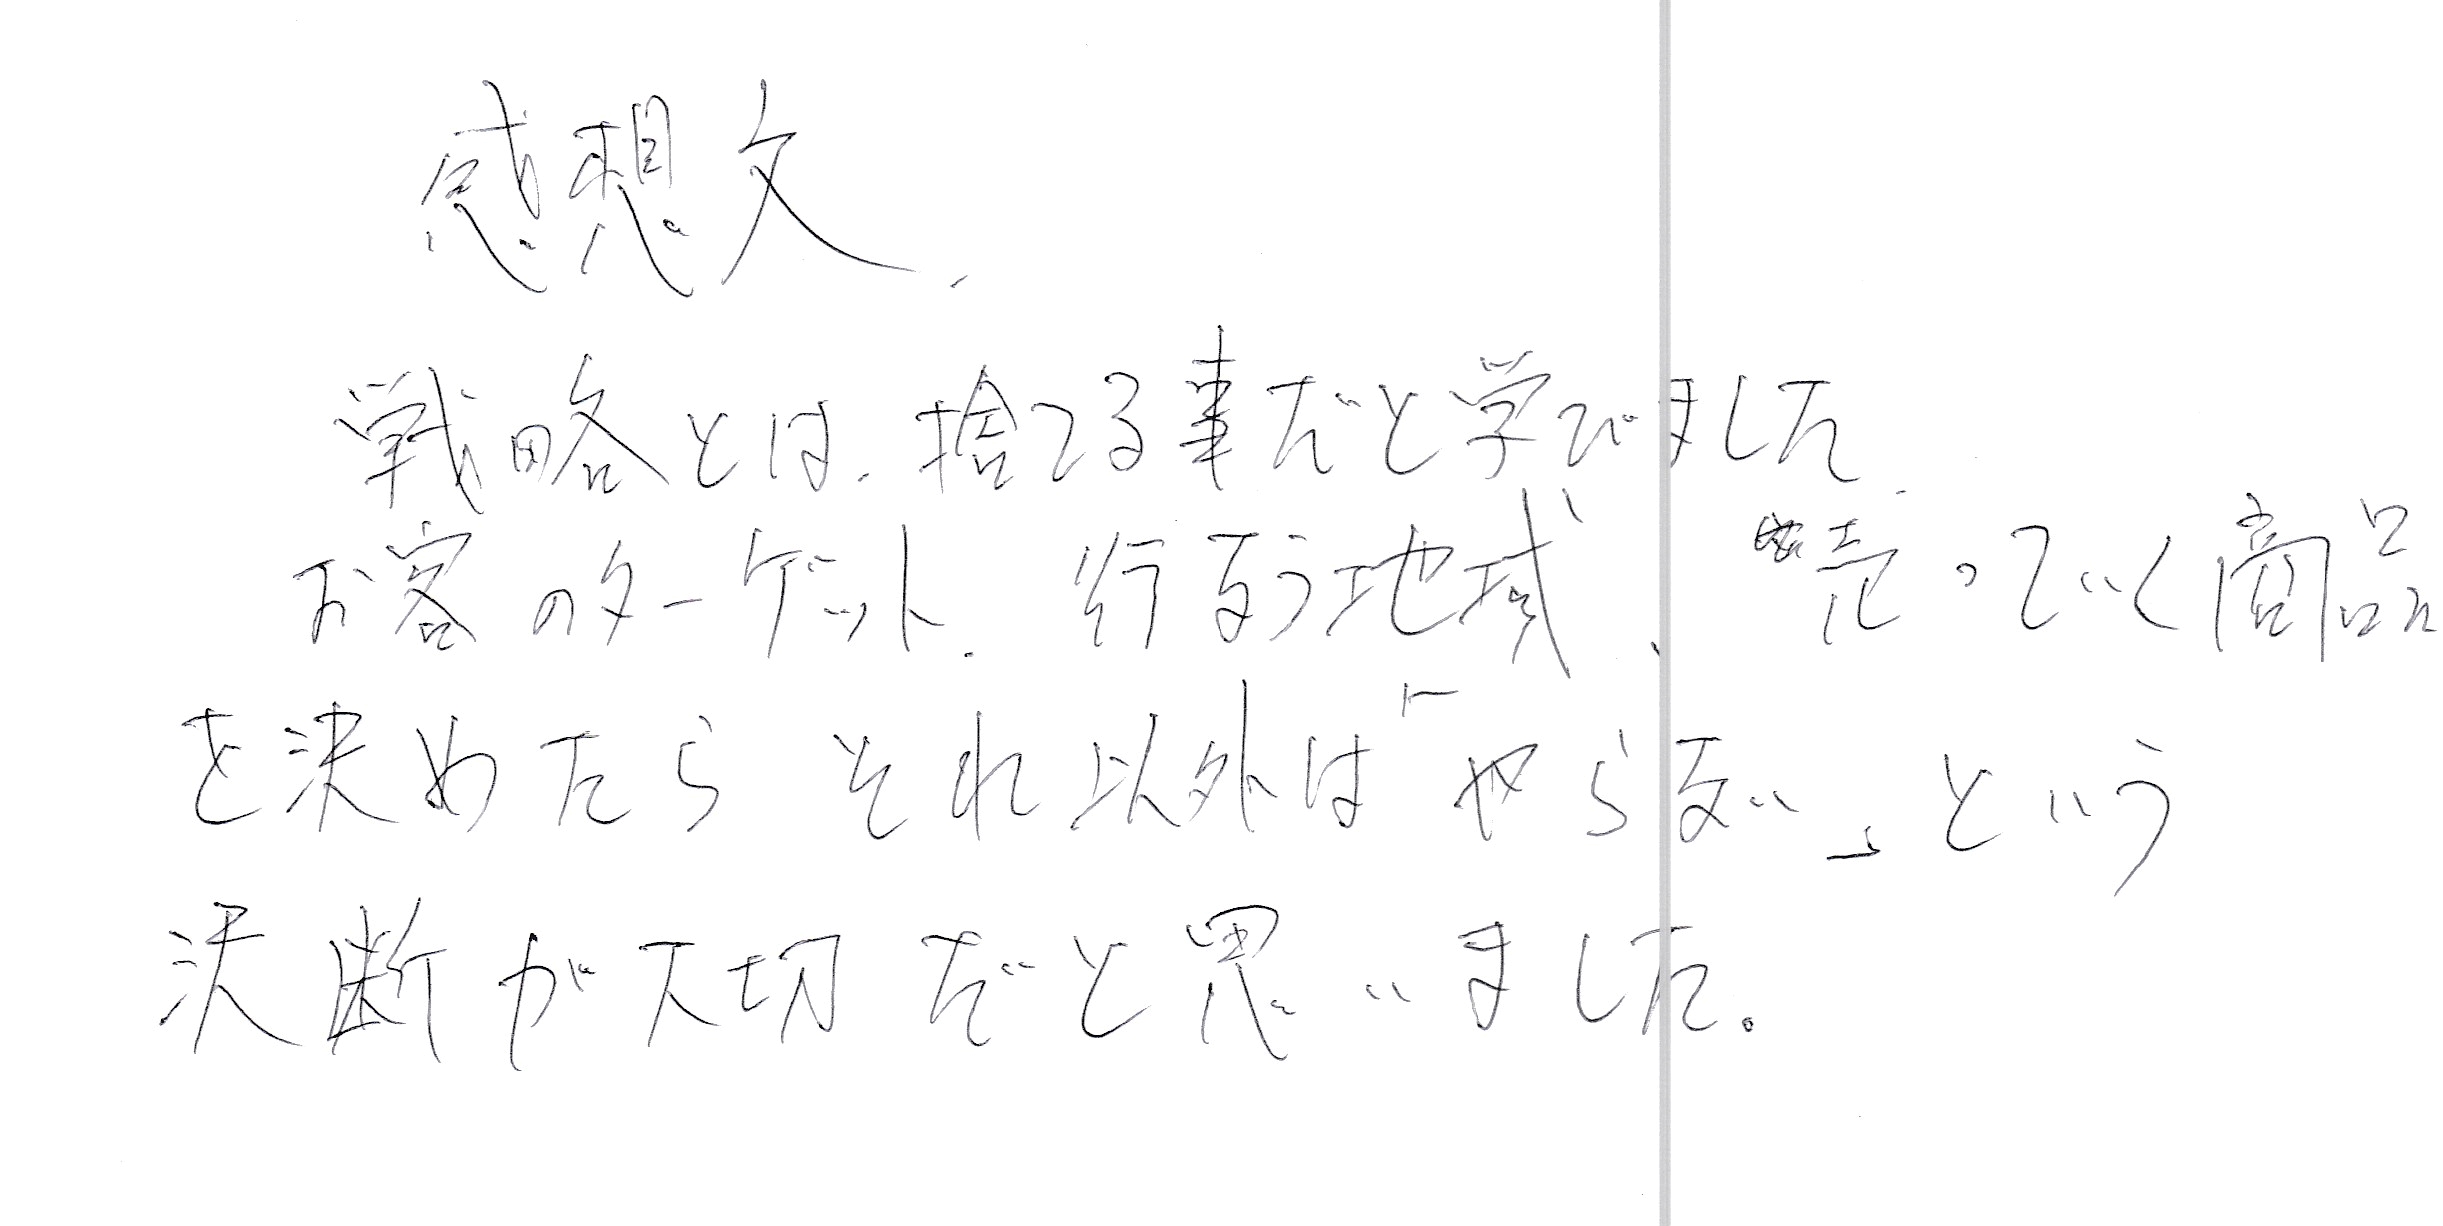 感想文.
戦略とは、捨てる事だと学びました.
お客のターゲット、行なう地域、売っていく商品
を決めたら それ以外は「やらない」という
決断が大切だと思いました。